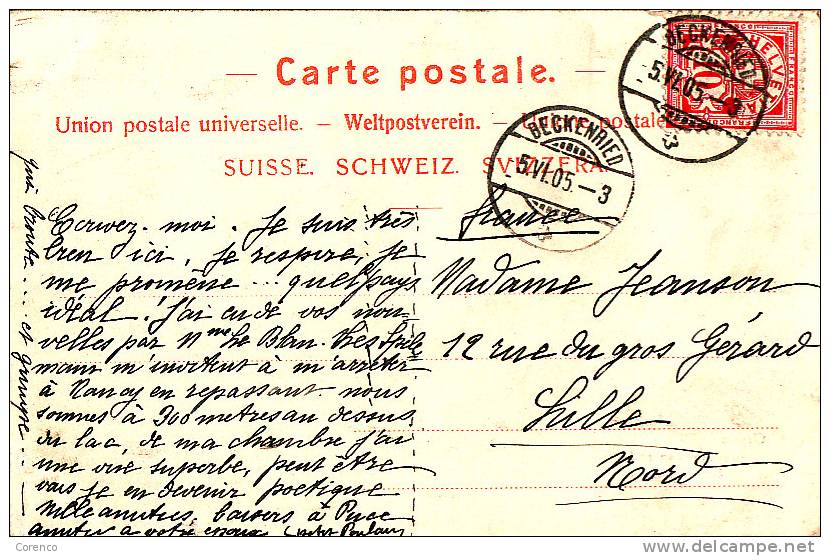 Carte postale.
Union postale universelle. — Weltpostverein. — Unione postale
SUISSE. SCHWEIZ. SVIZZERA.
HELVETIA
FRANCO
10
BECKENRIED
5.VI.05.–3
BECKENRIED
5.VI.05.–3
France
Madame Jeanson
12 rue du gros Gérard
Lille
Nord
Ecrivez-moi. Je suis très
bien ici, je respire, je
me promène ... quel pays
idéal! J'ai eu de vos nou-
velles par Mme Le Blan. Les
m'invitent à m'arrêter
à Nancy en repassant. nous
sommes à 300 metres au dessus
du lac, de ma chambre j'ai
une vue superbe, peut être
vais je en devenir poetique
Mille amitiés, baisers à
amitié à votre
qui broute ... et
Corenco
delcampe.net